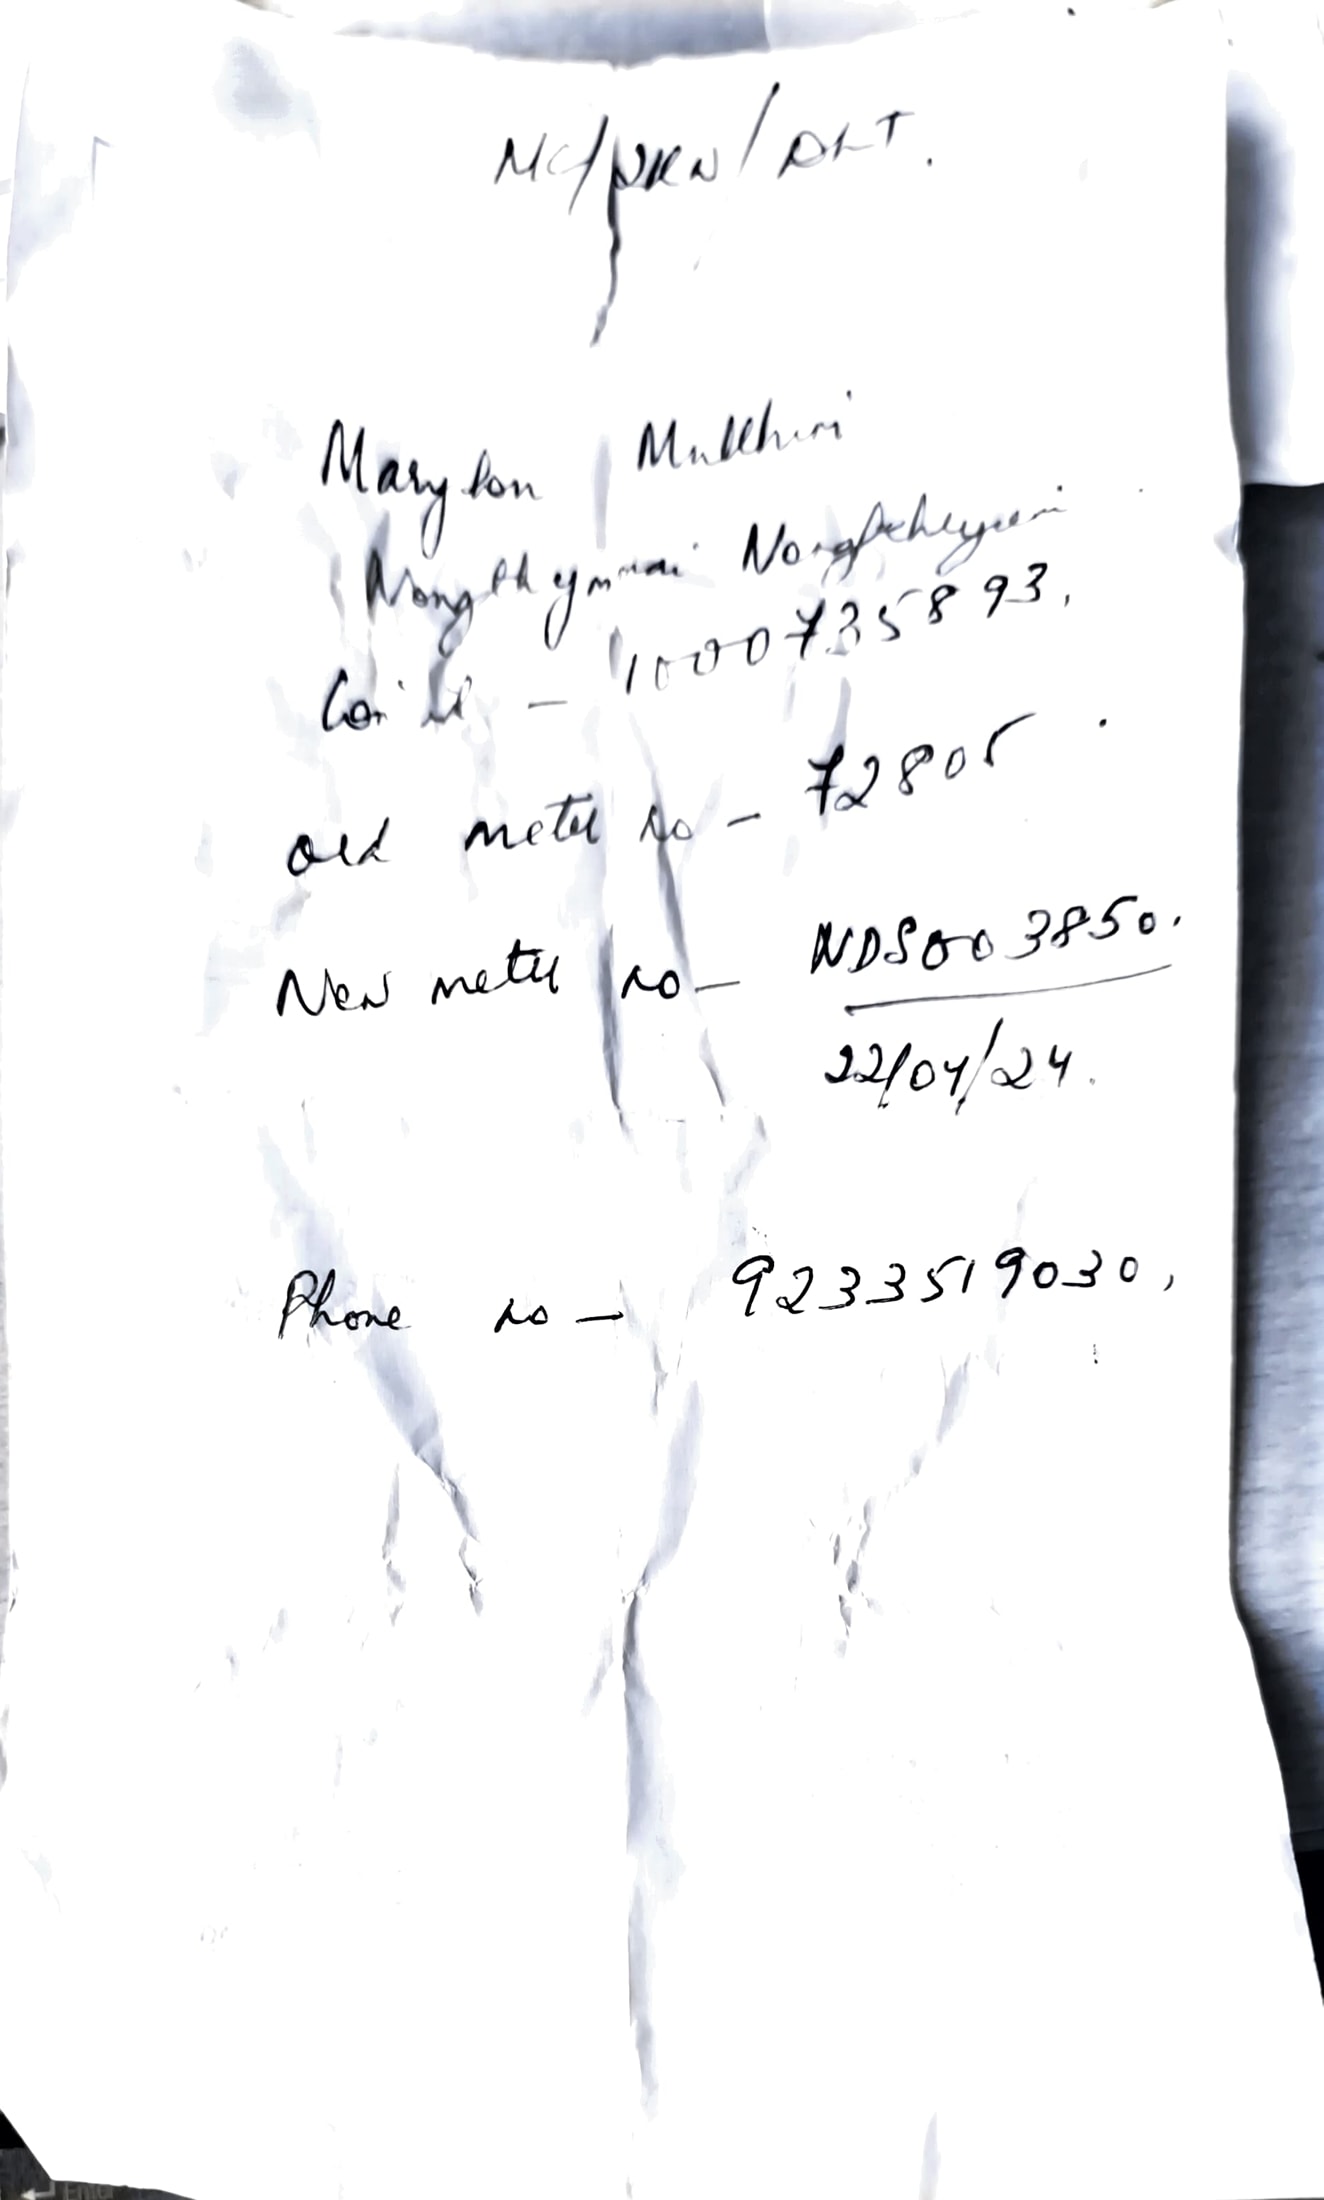 MC/NKN/DLT.
Marylon Mukhim
Nongthymmai
Con id - 10007358 93.
Old meter no - 72805
New meter no - NDS003850.
22/04/24.
Phone no - 9233519030,